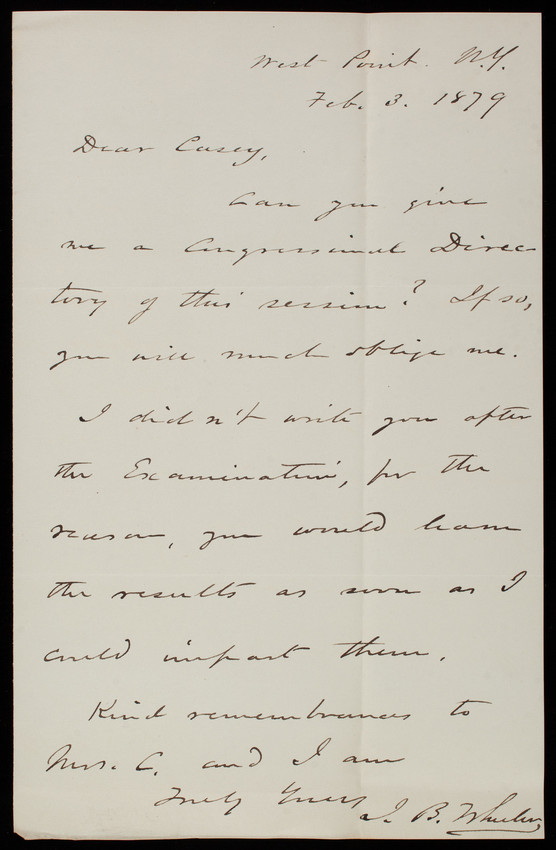 West Point. N.Y.
Feb. 3. 1879
Dear Casey,
Can you give
me a Congressional Direc-
tory of this session? If so,
you will much oblige me.
I didn't write you after
the Examination, for the
reason, you would learn
the results as soon as I
could impart them.
Kind remembrances to
Mrs. C. and I am
Truly Yours
J. B. Wheeler